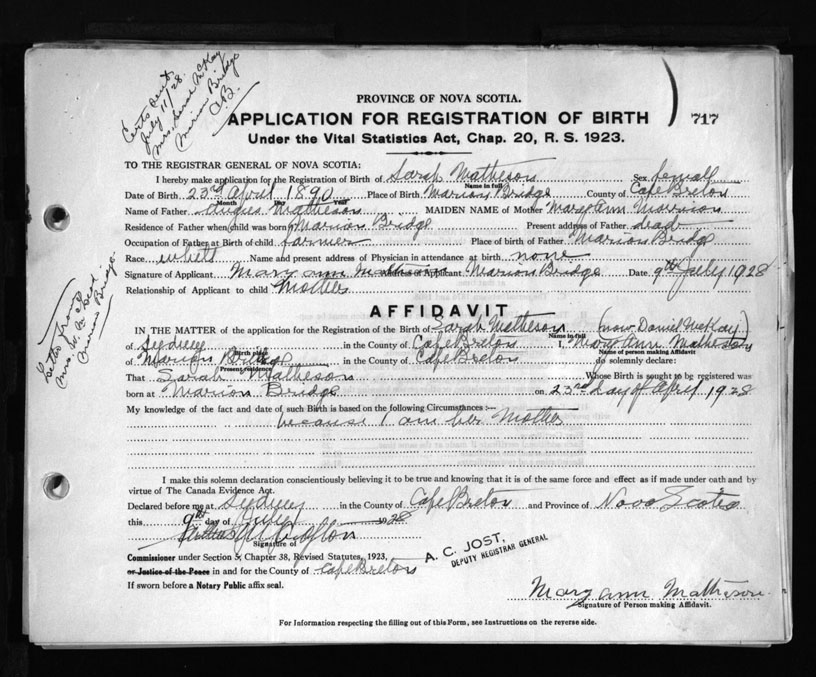 Certs sent
July 11/28
Mrs. Sarah McKay
Marion Bridge
C.B.
PROVINCE OF NOVA SCOTIA.
APPLICATION FOR REGISTRATION OF BIRTH
717
Under the Vital Statistics Act, Chap. 20, R. S. 1923.
TO THE REGISTRAR GENERAL OF NOVA SCOTIA:
I hereby make application for the Registration of Birth of Sarah Matheson Sex female
Name in full
Date of Birth 23rd April 1890 Place of Birth Marion Bridge County of Cape Breton
Month Day Year
Name of Father Angus Matheson MAIDEN NAME of Mother Mary Ann Morrison
Residence of Father when child was born Marion Bridge Present address of Father dead
Occupation of Father at Birth of child farmer Place of birth of Father Marion Bridge
Race Name and present address of Physician in attendance at birth none
Signature of Applicant Mary ann Matheson Address of Applicant Marion Bridge Date 9th July 1928
Relationship of Applicant to child Mother
Letter from
Mrs
Marion Bridge
AFFIDAVIT
IN THE MATTER of the application for the Registration of the Birth of Sarah Matheson (now Daniel McKay)
Name in full
of Sydney in the County of Cape Breton I, Mary Ann Matheson
Birth place Name of person making Affidavit
of Marion Bridge in the County of Cape Breton do solemnly declare:
Present residence
That Sarah Matheson Whose Birth is sought to be registered was
born at Marion Bridge on 23rd day of April 1928
My knowledge of the fact and date of such Birth is based on the following Circumstances:—
because I am her Mother
I make this solemn declaration conscientiously believing it to be true and knowing that it is of the same force and effect as if made under oath and by
virtue of The Canada Evidence Act.
Declared before me at Sydney in the County of Cape Breton and Province of Nova Scotia
this 9th day of July 1928
Signature of
Commissioner under Section 3, Chapter 38, Revised Statutes, 1923,
A. C. JOST,
DEPUTY REGISTRAR GENERAL
or Justice of the Peace in and for the County of Cape Breton
If sworn before a Notary Public affix seal.
Mary ann Matheson
Signature of Person making Affidavit.
For Information respecting the filling out of this Form, see Instructions on the reverse side.